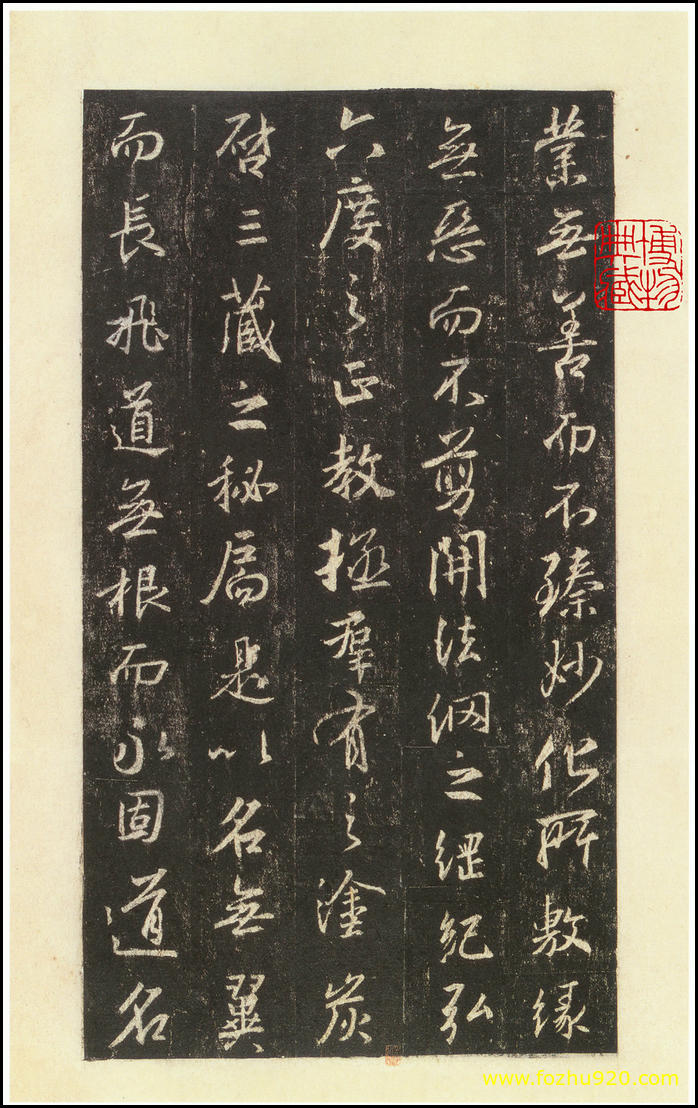 業無善而不臻妙化所敷緣
無惡而不剪開法網之綱紀弘
六度之正教拯羣有之塗炭
啓三藏之秘扃是以名無翼
而長飛道無根而永固道名
博物典藏
www.fozhu920.com